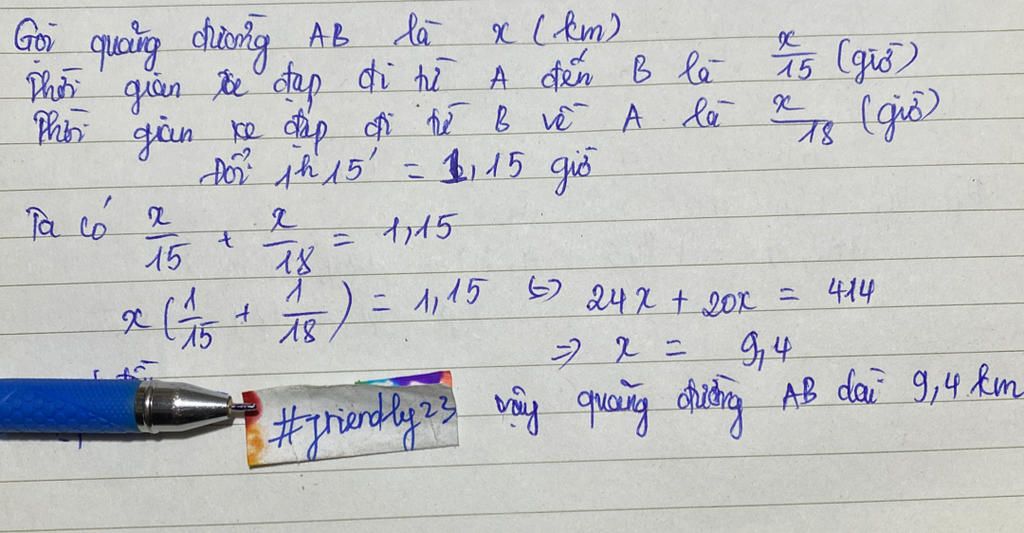 Gọi quãng đường AB là x (km)
Thời gian xe đạp đi từ A đến B là x/15 (giờ)
Thời gian xe đạp đi từ B về A là x/18 (giờ)
Đổi 1h15' = 1,15 giờ
Ta có x/15 + x/18 = 1,15
x(1/15 + 1/18) = 1,15 ⇔ 24x + 20x = 414
⇒ x = 9,4
Vậy quãng đường AB dài 9,4 km
#friendly23